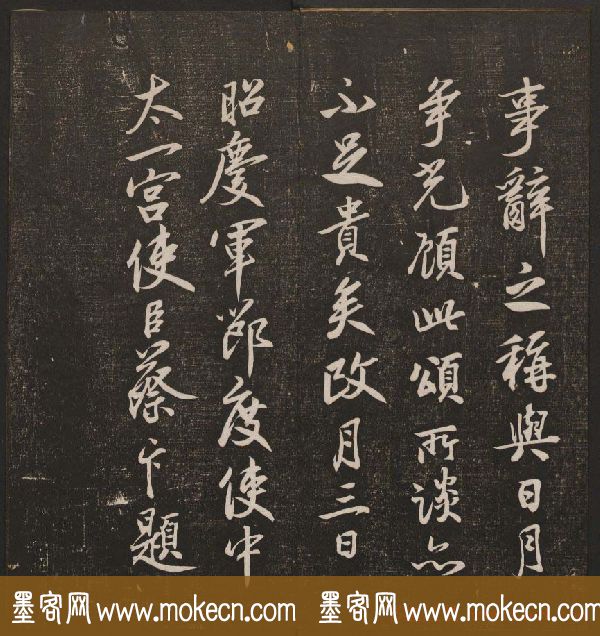 事辭之稱與日月
爭光顧此頌所談亦
不足貴矣政月三日
昭慶軍節度使中
太一宮使臣蔡卞題
墨客网 www.mokecn.com 墨客网 www.mokecn.com